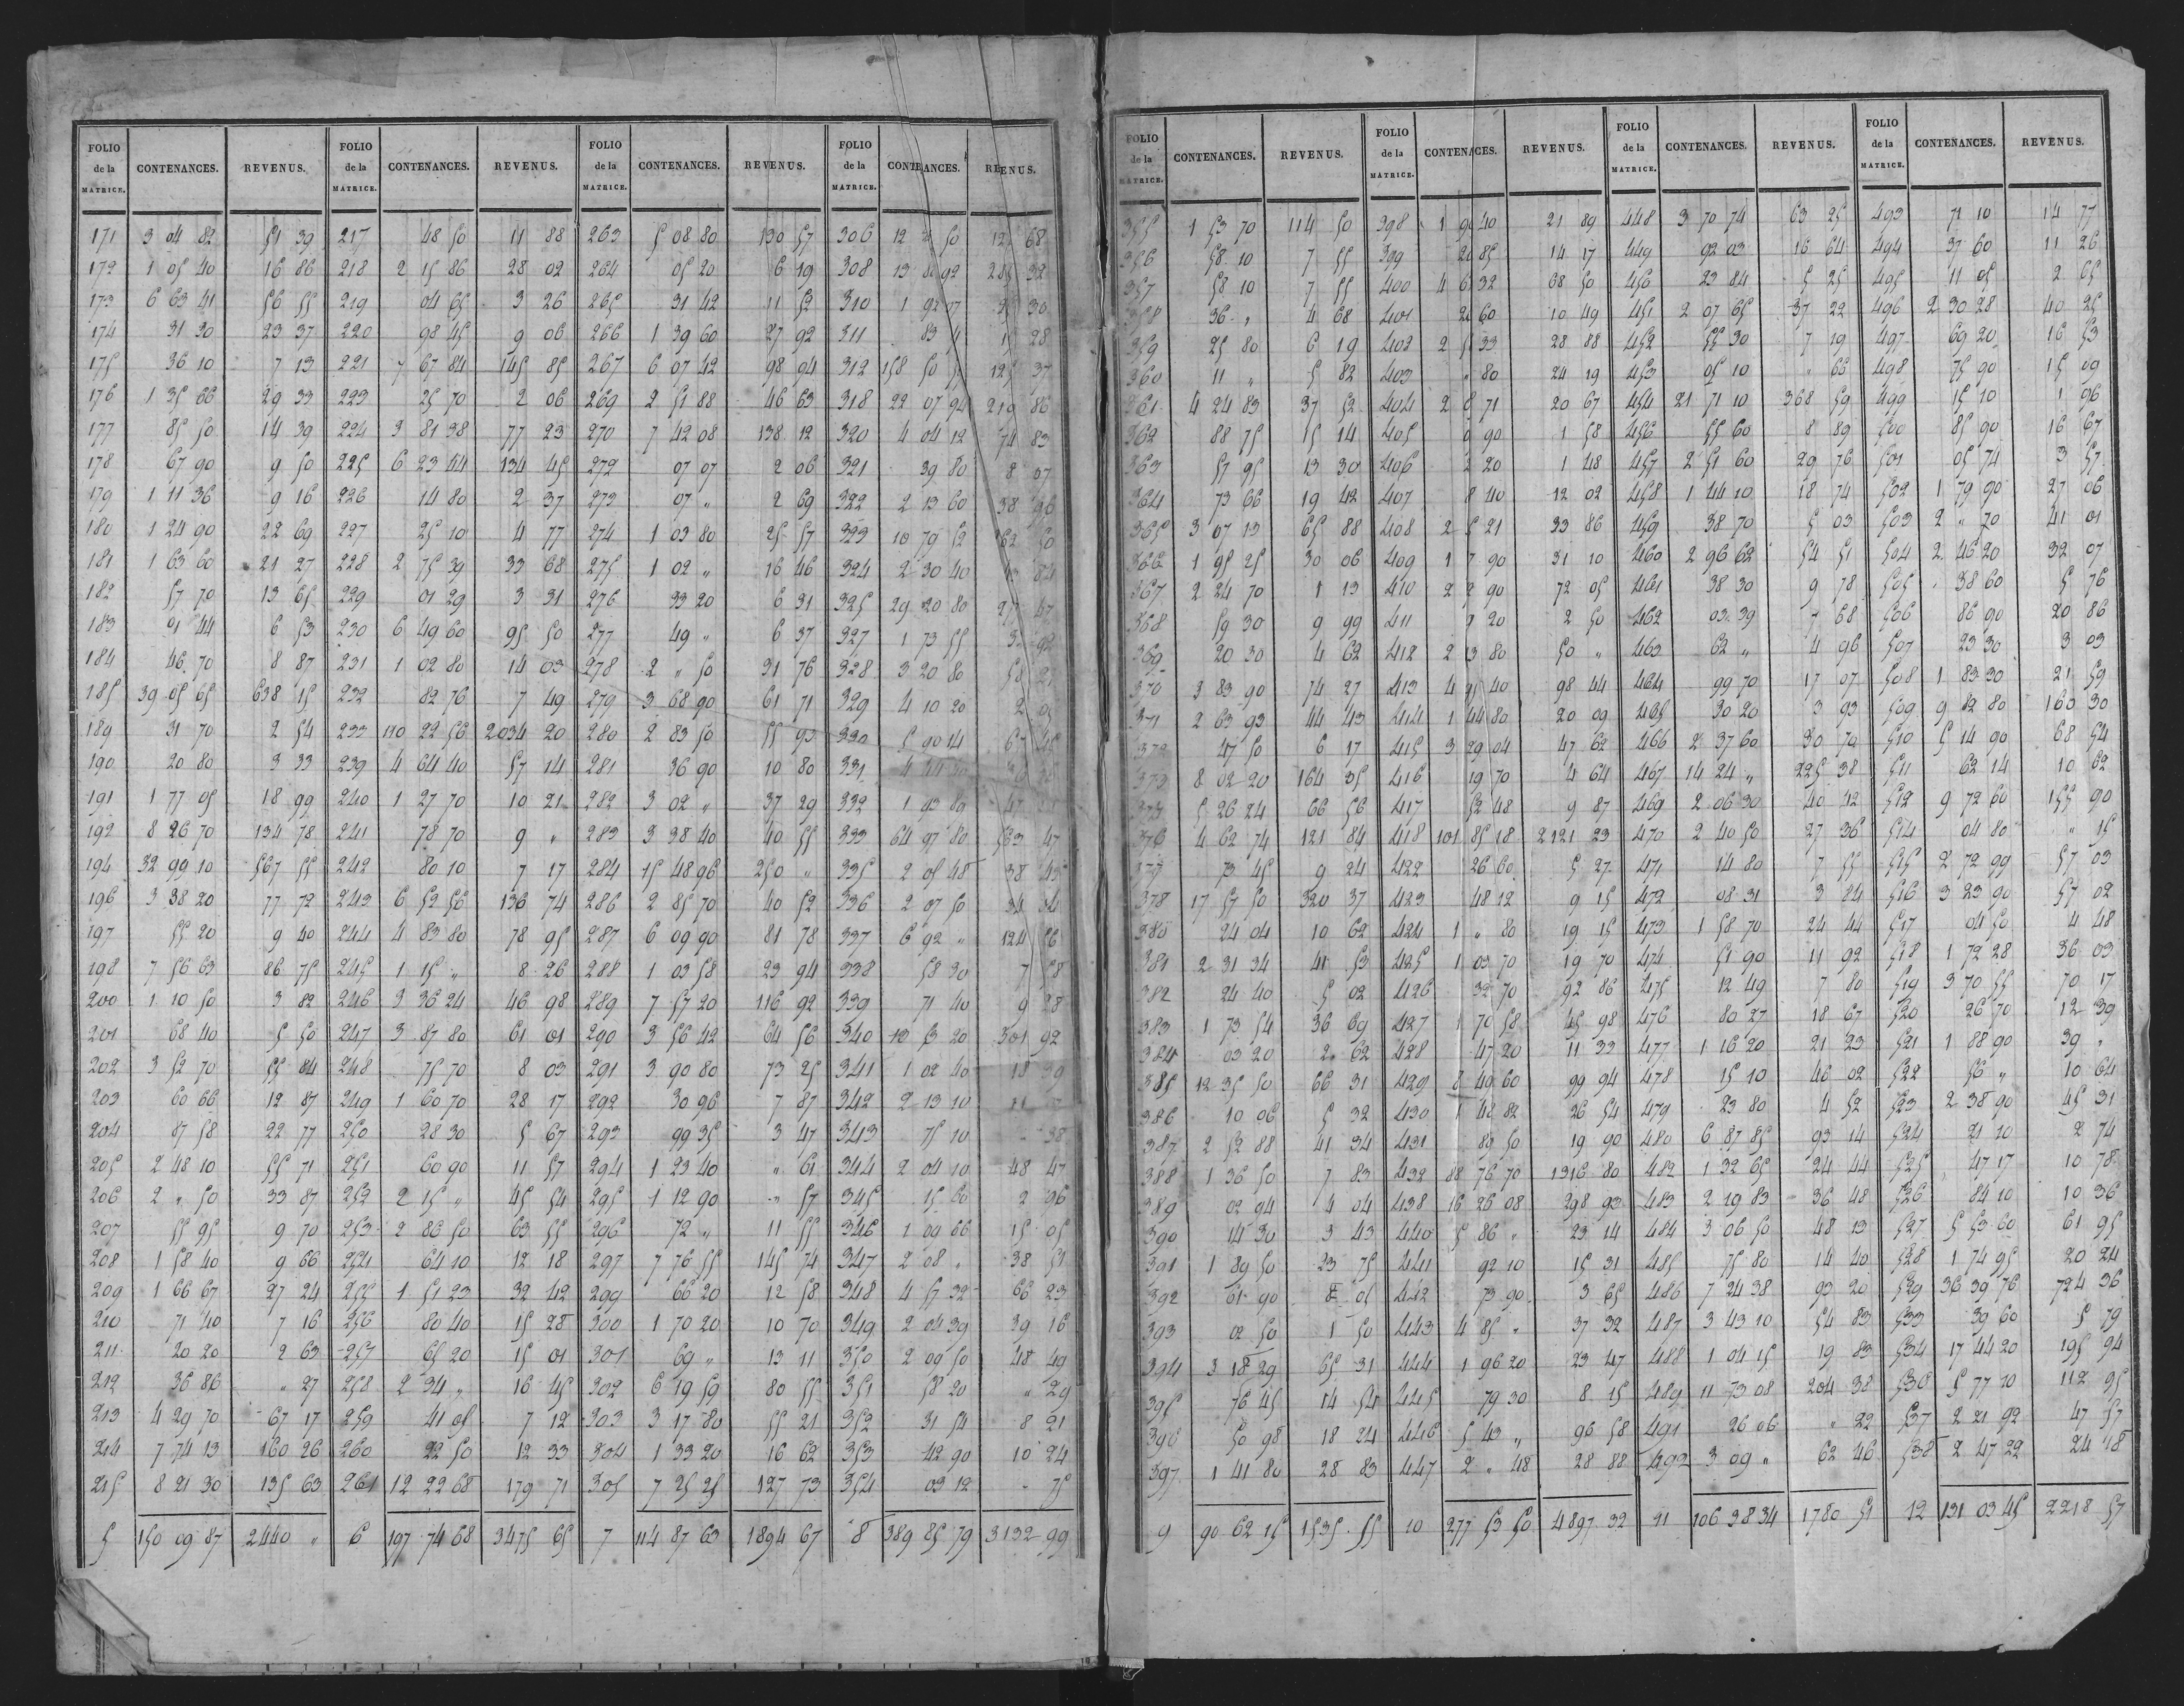 FOLIO de la MATRICE. CONTENANCES. REVENUS. FOLIO de la MATRICE. CONTENANCES. REVENUS. FOLIO de la MATRICE. CONTENANCES. REVENUS. FOLIO de la MATRICE.
171 3 04 82 51 39 217 48 50 11 88 263 5 08 80 130 57 306 12 50 68
172 1 05 40 16 86 218 2 15 86 28 02 264 05 20 6 19 308 13 92 32
173 6 63 41 56 55 219 04 65 3 26 265 31 42 11 52 310 1 92 07 30
174 31 30 23 37 220 98 45 9 06 266 1 39 60 27 92 311 83 28
175 36 10 7 13 221 7 67 84 145 85 267 6 07 42 98 04 312 158 50 125 37
176 1 35 66 29 33 223 25 70 2 06 269 2 51 88 46 63 318 22 07 94 219 86
177 85 50 14 39 224 3 81 38 77 23 270 7 42 08 138 12 320 4 04 12 74 83
178 67 90 9 50 225 6 23 44 134 45 272 07 07 2 06 321 39 80 8 07
179 1 11 36 9 16 226 14 80 2 37 273 07 " 2 69 322 2 13 60 38 96
180 1 24 90 22 69 227 25 10 4 77 274 1 03 80 25 57 323 10 79 52 162 50
181 1 63 60 21 27 228 2 75 39 33 68 275 1 02 " 16 46 324 2 30 40 84
182 57 70 13 65 229 01 29 3 31 276 33 20 6 31 325 29 20 80 47
183 91 44 6 53 230 6 49 60 95 50 277 49 " 6 37 327 1 73 55 92
184 46 70 8 87 231 1 02 80 14 03 278 2 " 50 31 76 328 3 20 80 58
185 39 05 65 638 15 232 82 76 7 49 279 3 68 90 61 71 329 4 10 20
189 31 70 2 54 233 110 22 56 2034 20 280 2 83 50 55 93 330 5 90 14 67
190 20 80 3 33 239 4 64 40 57 14 281 36 90 10 80 331
191 1 77 05 18 99 240 1 27 70 10 21 282 3 02 " 37 29 332 1 93 80 47
192 8 26 70 134 78 241 78 70 9 " 283 3 38 40 40 55 333 64 97 80 563 47
194 32 99 10 567 55 242 80 10 7 17 284 15 48 96 250 " 335 2 05 48 38 45
196 3 38 20 77 72 243 6 52 56 136 74 286 2 85 70 40 52 336 2 07 50 34 34
197 55 20 9 40 244 4 83 80 78 95 287 6 09 90 81 78 337 6 92 " 124 56
198 7 56 63 86 75 245 1 15 " 8 26 288 1 03 58 23 94 338 58 30 7 58
200 1 10 50 3 82 246 3 36 24 46 98 289 7 57 20 116 92 339 71 40 9 28
201 68 40 5 50 247 3 87 80 61 01 290 3 56 42 64 56 340 10 53 20 301 92
202 3 52 70 55 84 248 75 70 8 03 291 3 90 80 73 25 341 1 02 40 18 39
203 60 66 12 87 249 1 60 70 28 17 292 30 96 7 87 342 2 13 10
204 87 58 22 77 250 28 30 5 67 293 99 35 3 47 343 75 10 38
205 2 48 10 55 71 251 60 90 11 57 294 1 23 40 " 61 344 2 04 10 48 47
206 2 " 50 33 87 252 2 15 " 45 54 295 1 12 90 " 57 345 15 60 2 96
207 55 95 9 70 253 2 86 50 63 55 296 72 " 11 55 346 1 09 66 15 05
208 1 58 40 9 66 254 64 10 12 18 297 7 76 55 145 74 347 2 08 " 38 51
209 1 66 67 27 24 255 1 51 23 32 42 299 66 20 12 58 348 4 57 32 66 23
210 71 40 7 16 256 80 40 15 28 300 1 70 20 10 70 349 2 04 39 39 16
211 20 20 2 63 257 65 20 15 01 301 69 " 13 11 350 2 09 50 48 49
212 36 86 " 27 258 2 34 " 16 45 302 6 19 59 80 55 351 58 20 " 29
213 4 29 70 67 17 259 41 05 7 12 303 3 17 80 55 21 352 31 54 8 21
214 7 74 13 160 26 260 22 50 12 33 304 1 33 20 16 62 353 42 90 10 24
215 8 21 30 135 63 261 12 22 68 179 71 305 7 25 25 127 73 354 03 12 - 75
5 150 09 87 2440 " 6 197 74 68 3475 65 7 114 87 63 1894 67 8 389 85 79 3132 99
FOLIO de la MATRICE. CONTENANCES. REVENUS. FOLIO de la MATRICE. CONTENANCES. REVENUS. FOLIO de la MATRICE. CONTENANCES. REVENUS. FOLIO de la MATRICE. CONTENANCES. REVENUS.
355 1 53 70 114 50 398 1 90 40 21 89 448 3 70 74 63 25 493 71 10 14 77
356 58 10 7 55 399 85 14 17 449 92 03 16 64 494 37 60 11 26
357 58 10 7 55 400 4 6 32 68 50 450 23 84 5 25 495 11 05 2 65
358 36 " 4 68 401 60 10 49 451 2 07 65 37 22 496 2 30 28 40 25
359 25 80 6 19 402 2 33 28 88 452 55 30 7 19 497 69 20 16 53
360 11 " 5 82 403 80 24 19 453 05 10 " 66 498 75 90 15 09
361 4 24 83 37 52 404 2 71 20 67 454 21 71 10 368 59 499 15 10 1 96
362 88 75 15 14 405 90 1 58 456 55 60 8 89 500 85 90 16 67
363 57 95 13 30 406 20 1 48 457 2 51 60 29 76 501 05 74 3 57
364 73 66 19 42 407 8 40 12 02 458 1 44 10 18 74 502 1 79 90 27 06
365 3 07 13 65 88 408 2 5 21 33 86 459 38 70 5 03 503 2 " 70 41 01
366 1 95 25 30 06 409 1 7 90 31 10 460 2 96 62 54 51 504 2 46 20 32 07
367 2 24 70 1 13 410 2 90 72 05 461 38 30 9 78 505 38 60 5 76
368 59 30 9 99 411 20 2 50 462 03 39 " 68 506 86 90 20 86
369 20 30 4 62 412 2 13 80 50 " 463 62 " 4 96 507 23 30 3 03
370 3 83 90 74 27 413 4 95 40 98 44 464 99 70 17 07 508 1 83 30 21 59
371 2 63 93 44 43 414 1 44 80 20 09 465 30 20 3 93 509 9 82 80 160 30
372 47 50 6 17 415 3 29 04 47 62 466 2 37 60 30 70 510 5 14 90 68 54
373 8 02 20 164 35 416 19 70 4 64 467 14 24 " 225 38 511 62 14 10 62
375 5 26 24 66 56 417 52 48 9 87 469 2 06 30 40 42 512 9 72 60 155 90
376 4 62 74 121 84 418 101 85 18 2121 23 470 2 40 50 27 36 514 04 80 " 15
377 73 45 9 24 422 26 60 5 27 471 14 80 7 55 515 2 72 99 57 03
378 17 57 50 320 37 423 48 12 9 15 472 08 31 3 84 516 3 23 90 57 02
380 24 04 10 62 424 1 " 80 19 15 473 1 58 70 24 44 517 04 50 4 48
381 2 31 34 41 53 425 1 03 70 19 70 474 51 90 11 92 518 1 72 28 36 03
382 24 40 5 02 426 32 70 92 86 475 12 49 7 80 519 3 70 55 70 17
383 1 73 54 36 69 427 1 70 58 45 98 476 80 27 18 67 520 26 70 12 39
384 03 20 2 62 428 47 20 11 33 477 1 16 20 21 23 521 1 88 90 39 "
385 12 35 50 66 31 429 8 49 60 99 94 478 15 10 46 02 522 56 " 10 64
386 10 06 5 32 430 1 48 82 26 54 479 23 80 4 52 523 2 38 90 45 31
387 2 52 88 41 34 431 82 50 19 90 480 6 87 85 93 14 524 21 20 2 74
388 1 36 50 7 83 432 88 76 70 1316 80 482 1 32 65 24 44 525 47 17 10 78
389 02 94 4 04 438 16 26 08 298 93 483 2 19 83 36 48 526 84 10 10 36
390 14 30 3 43 440 5 86 " 23 14 484 3 06 50 48 13 527 5 53 60 61 95
391 1 89 50 23 75 441 92 10 15 31 485 75 80 14 40 528 1 74 95 20 24
392 61 90 8 05 442 73 90 3 65 486 7 24 38 93 20 529 36 39 76 724 36
393 02 50 1 50 443 4 85 " 37 32 487 3 43 10 54 83 533 39 60 5 79
394 3 18 29 65 31 444 1 96 20 23 47 488 1 04 15 19 83 534 17 44 20 195 94
395 76 45 14 54 445 79 30 8 15 489 11 73 08 204 38 536 5 77 70 112 95
396 50 98 18 24 446 5 43 " 96 58 491 26 06 " 22 537 2 21 92 47 57
397 1 41 80 28 83 447 2 " 48 28 88 492 3 09 " 62 46 538 2 47 22 24 18
9 90 62 15 1535 55 10 277 53 50 4897 32 11 106 38 34 1780 51 12 131 03 45 2218 57